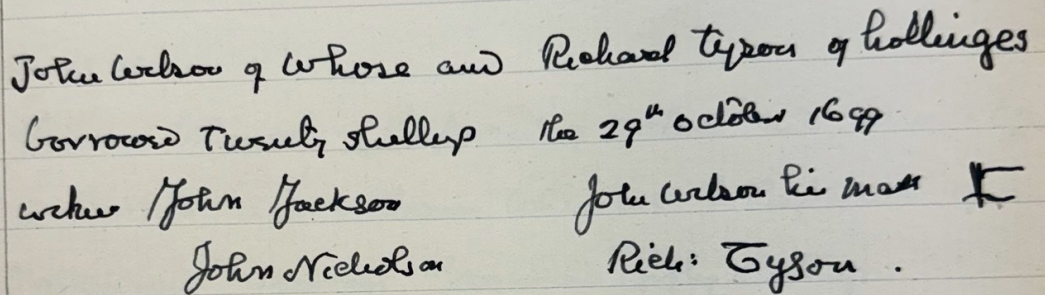 John Wilson of Whose and Richard Tyson of hollinges
borrowed Twenty shillings the 29th october 1699
witnes John Jackson John Wilson his mark
John Nicholson Rich: Tyson.